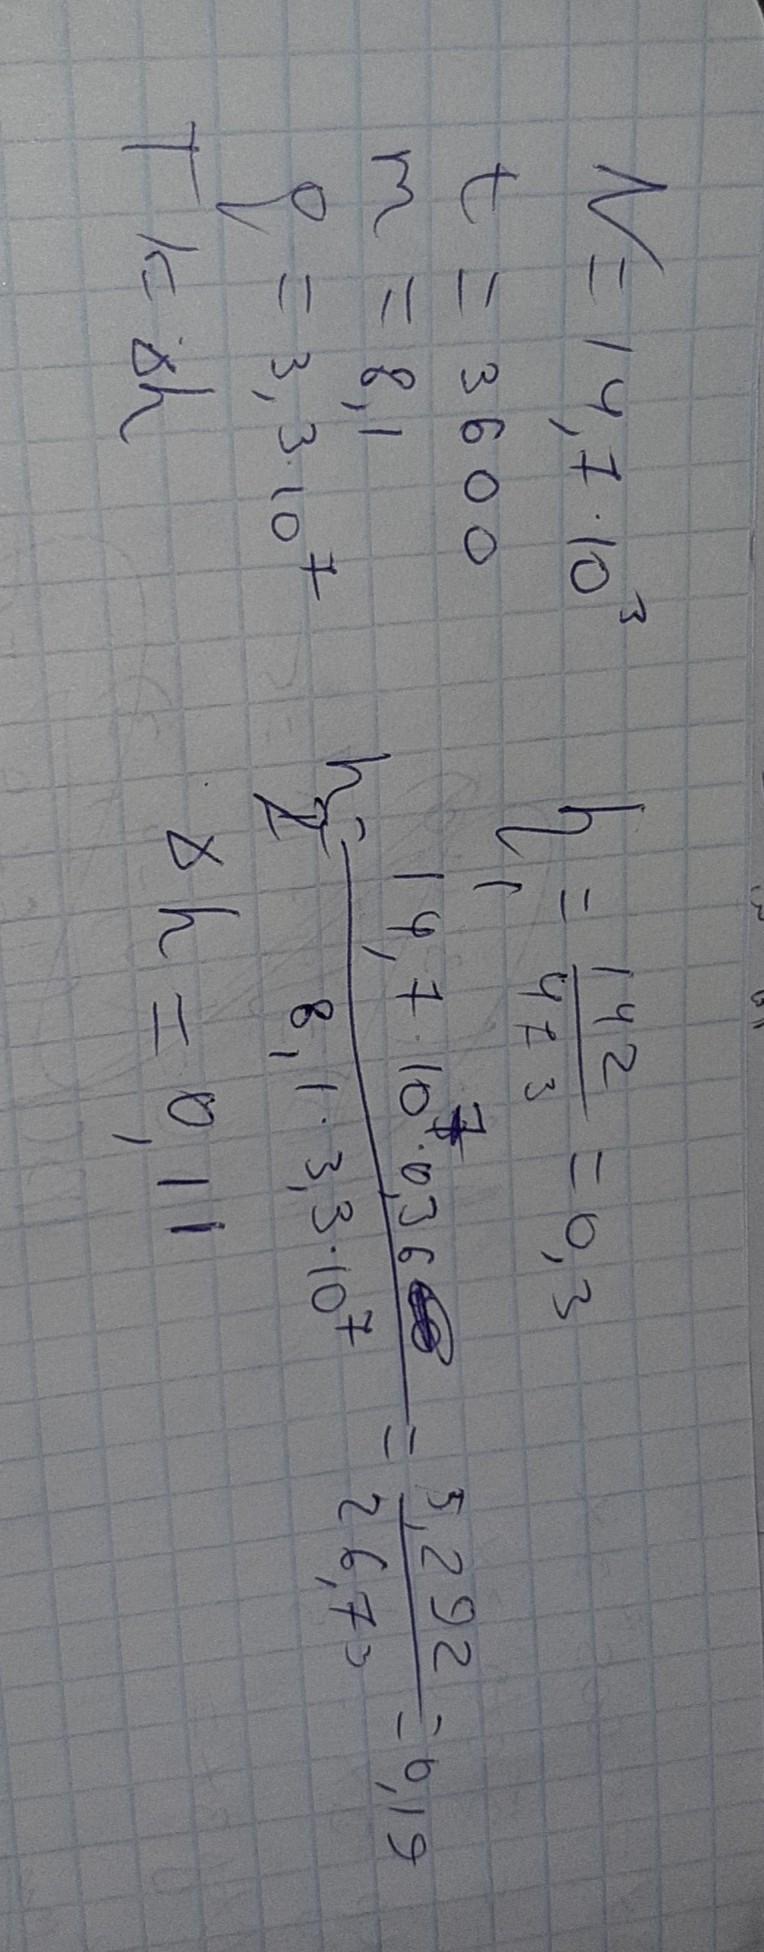 N = 14,7·10³
t = 3600
m = 8,1
q = 3,3·10⁷
η₁ = 142/473 = 0,3
η₂ = 14,7·10⁷·0,36 / 8,1·3,3·10⁷ = 5,292/26,73 = 0,19
Δη = 0,11